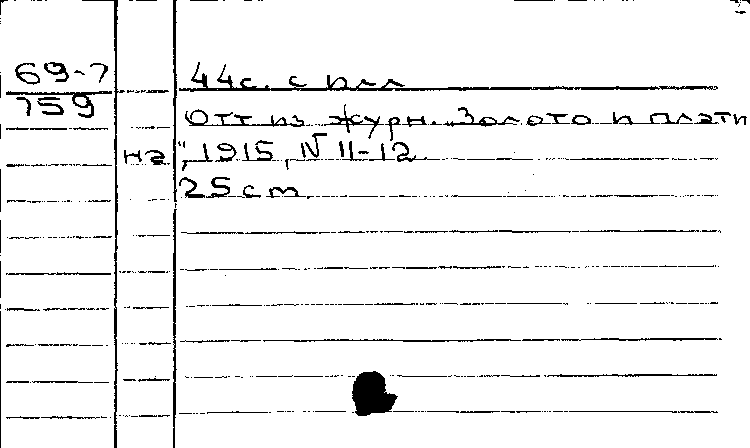 69-7 44с. с илл
759 Отт из журн. „Золото и плати
на", 1915, N 11-12.
25 cm.